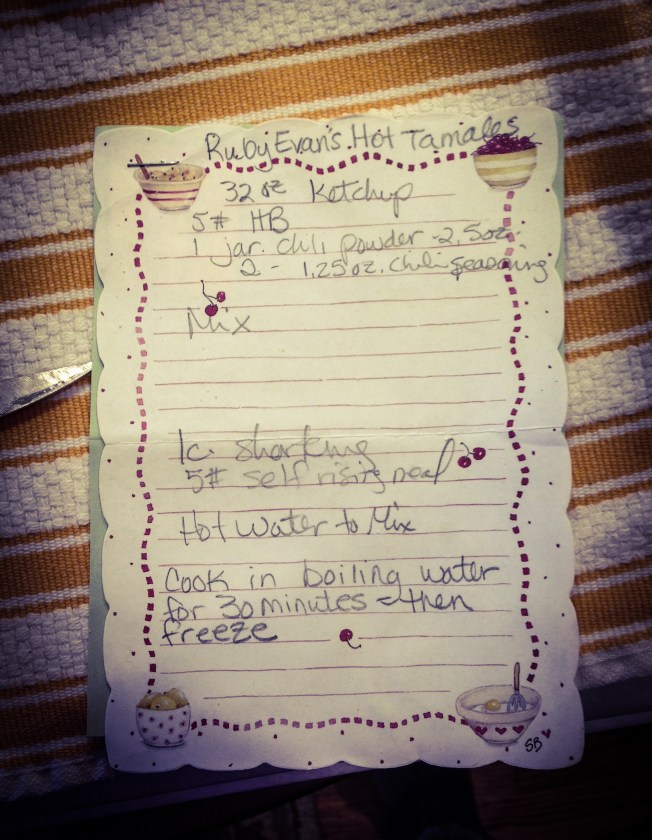 Ruby Evan's Hot Tamales
32 oz Ketchup
5# HB
1 jar. chili powder - 2.5 oz.
2 - 1.25 oz. chili seasoning
Mix
1c. shortning
5# self rising meal
Hot Water to Mix
Cook in boiling water
for 30 minutes - then
freeze
SB